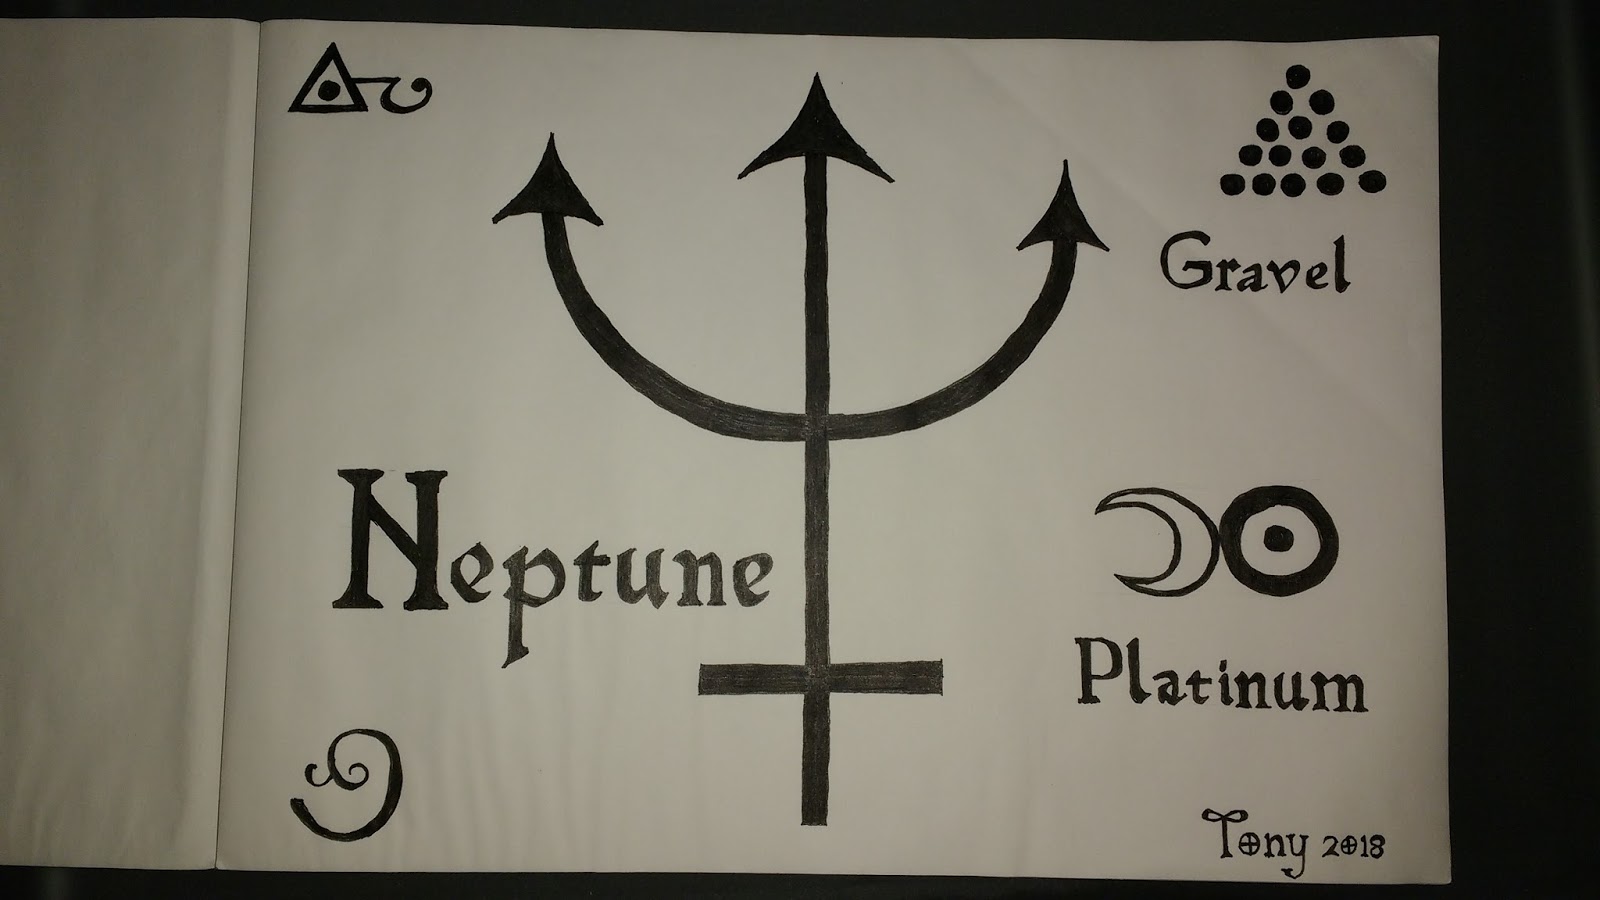 Gravel
Neptune
Platinum
Tony 2018